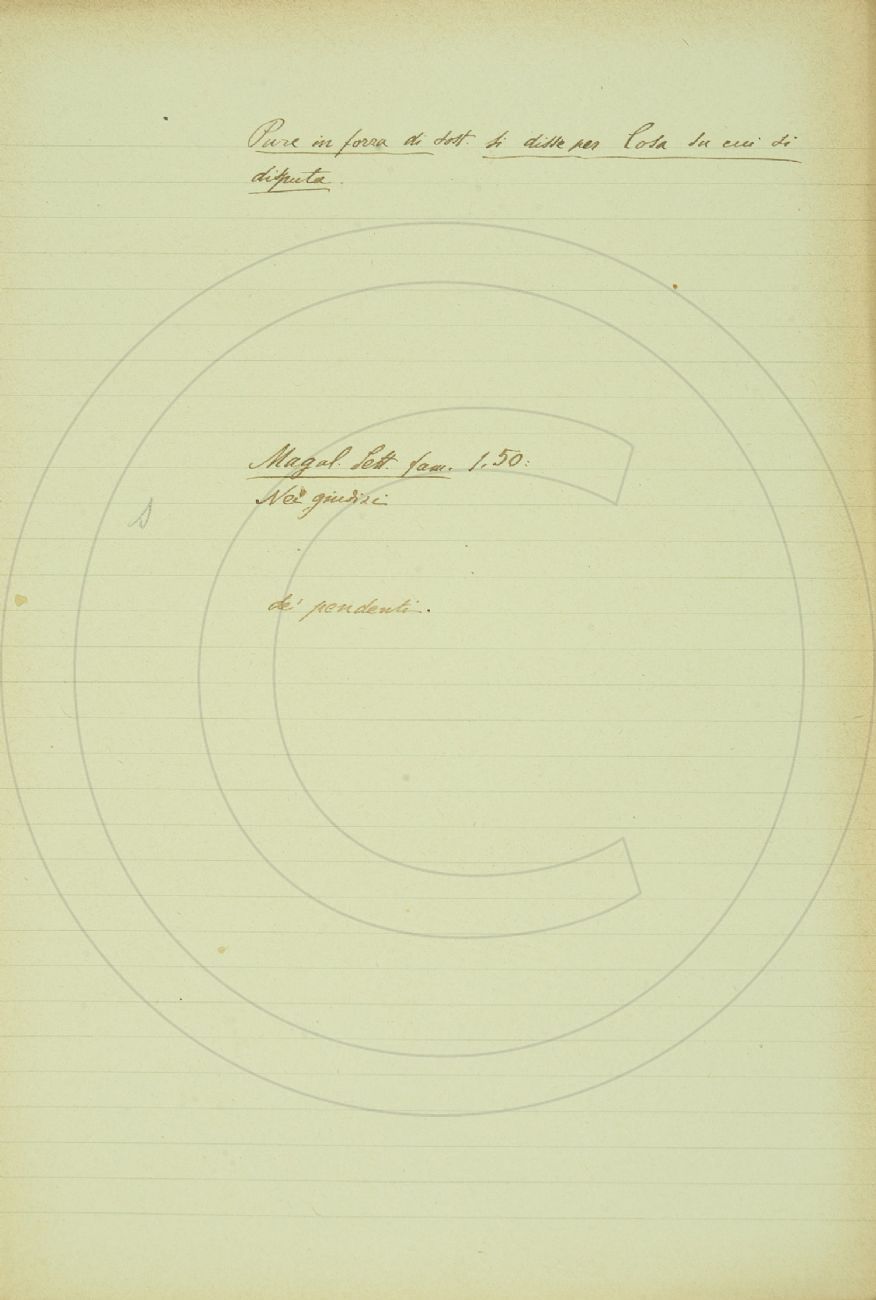 Pure in forza di sost. si disse per Cosa su cui si
disputa.
Magal. Lett. fam. 1. 50:
Nei giudizi
de' pendenti.